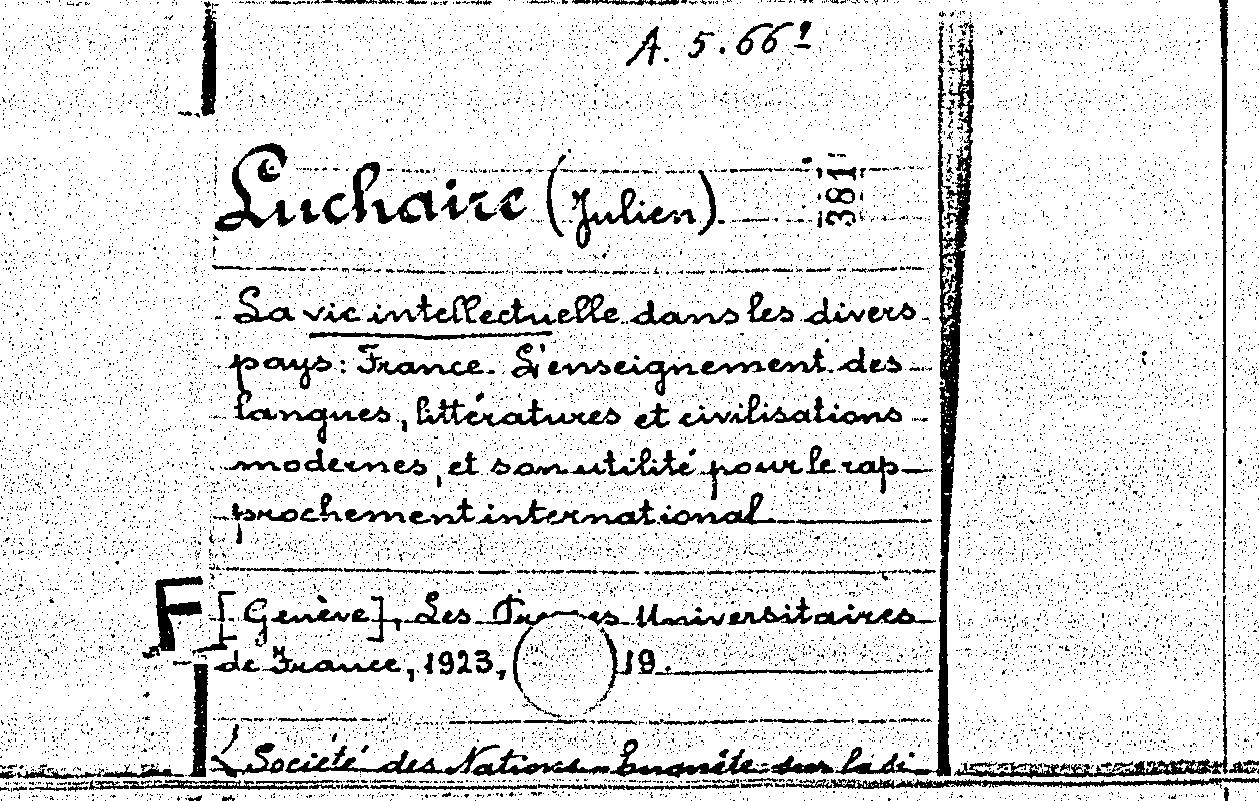 A. 5. 66²
Luchaire (Julien).
381
La vie intellectuelle dans les divers
pays : France. L'enseignement des
langues, littératures et civilisations
modernes, et son utilité pour le rap-
prochement international
F
[Genève], Les Presses Universitaires
de France, 1923, 19.
Société des Nations. Enquête sur la